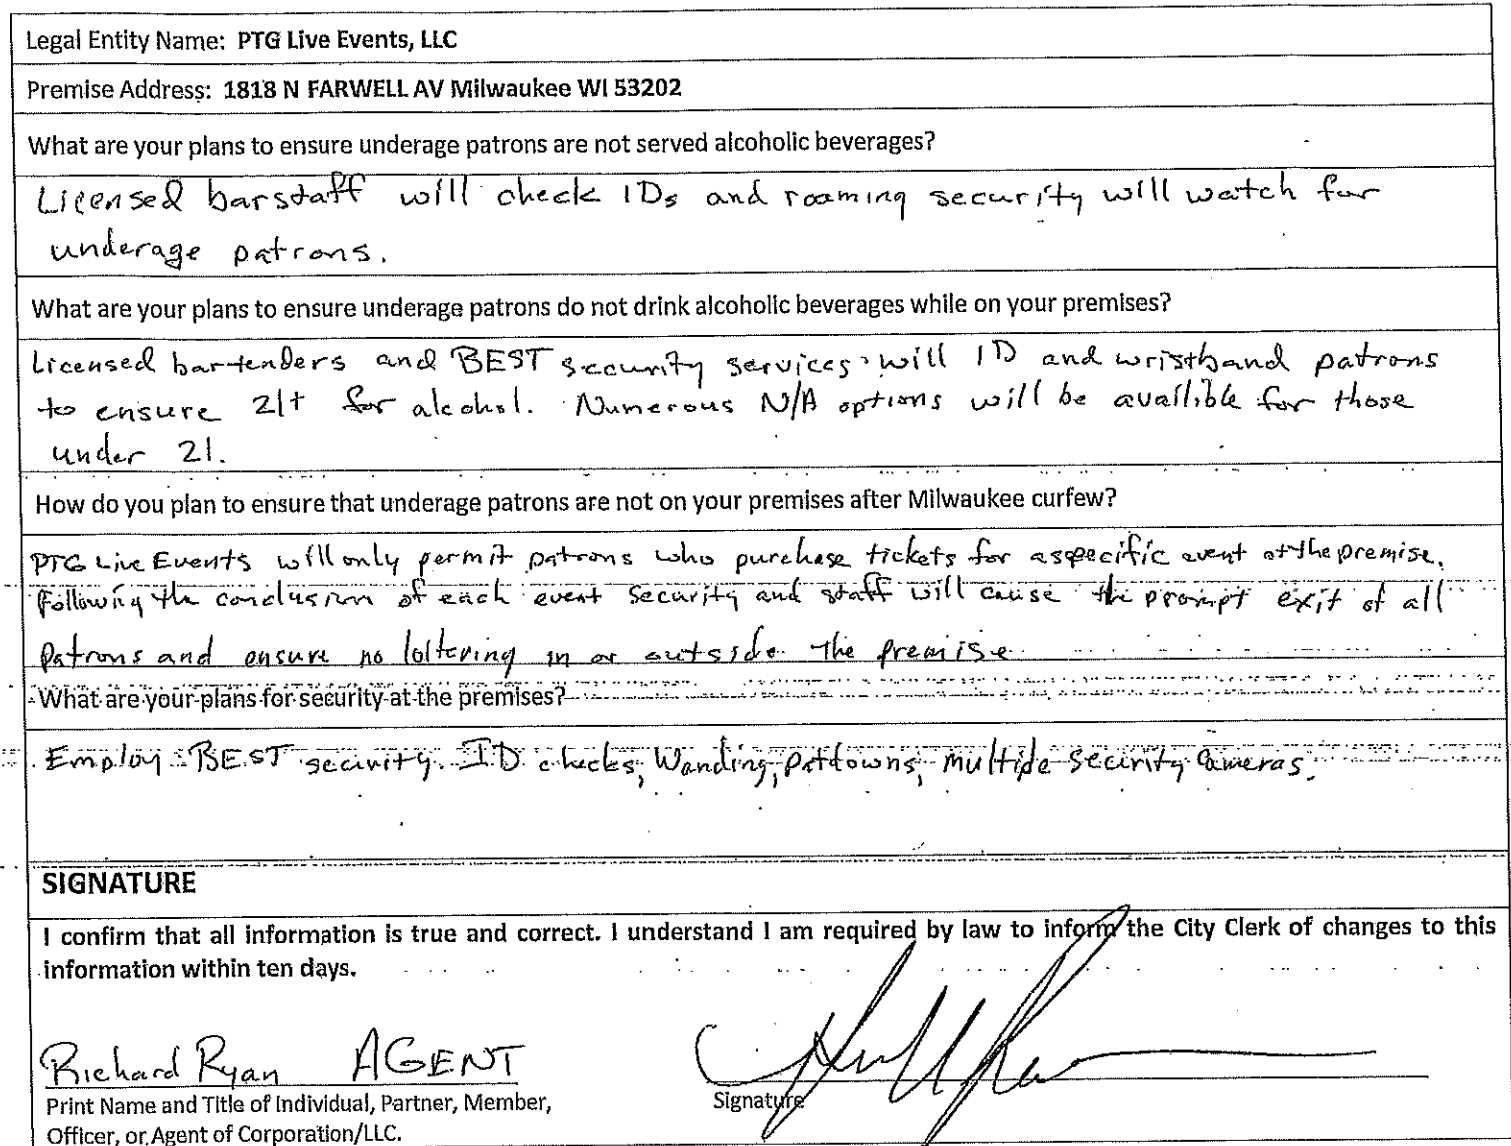 Legal Entity Name: PTG Live Events, LLC
Premise Address: 1818 N FARWELL AV Milwaukee WI 53202
What are your plans to ensure underage patrons are not served alcoholic beverages?
Licensed barstaff will check IDs and roaming security will watch for
underage patrons.
What are your plans to ensure underage patrons do not drink alcoholic beverages while on your premises?
Licensed bartenders and BEST security services will ID and wristband patrons
to ensure 21+ for alcohol. Numerous N/A options will be availible for those
under 21.
How do you plan to ensure that underage patrons are not on your premises after Milwaukee curfew?
PTG Live Events will only permit patrons who purchase tickets for a specific event at the premise.
Following the conclusion of each event security and staff will cause the prompt exit of all
patrons and ensure no loitering in or outside the premise
What are your plans for security at the premises?
Employ BEST security. ID checks, Wanding, pattdowns, multiple security cameras.
SIGNATURE
I confirm that all information is true and correct. I understand I am required by law to inform the City Clerk of changes to this
information within ten days.
Richard Ryan AGENT
Print Name and Title of Individual, Partner, Member,
Signature
Officer, or Agent of Corporation/LLC.